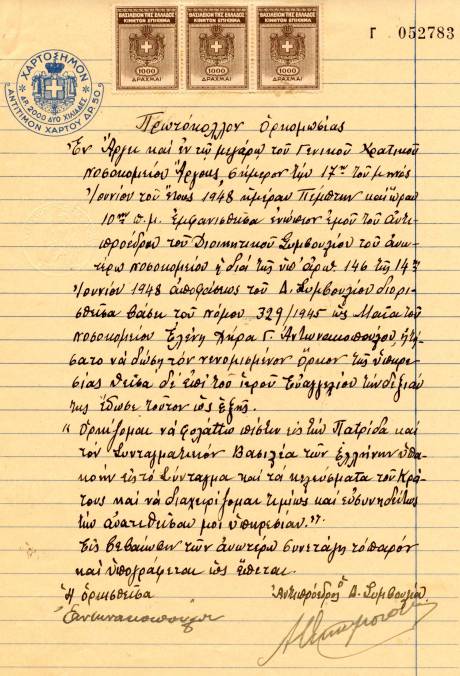 ΒΑΣΙΛΕΙΟΝ ΤΗΣ ΕΛΛΑΔΟΣ
ΚΙΝΗΤΟΝ ΕΠΙΣΗΜΑ
1000
ΔΡΑΧΜΑΙ
ΒΑΣΙΛΕΙΟΝ ΤΗΣ ΕΛΛΑΔΟΣ
ΚΙΝΗΤΟΝ ΕΠΙΣΗΜΑ
1000
ΔΡΑΧΜΑΙ
ΒΑΣΙΛΕΙΟΝ ΤΗΣ ΕΛΛΑΔΟΣ
ΚΙΝΗΤΟΝ ΕΠΙΣΗΜΑ
1000
ΔΡΑΧΜΑΙ
Γ 052783
ΧΑΡΤΟΣΗΜΟΝ
ΔΡ. 2000 ΔΥΟ ΧΙΛΙΑΔΕΣ
ΑΝΤΙΤΙΜΟΝ ΧΑΡΤΟΥ ΔΡ. 50
Πρωτόκολλον ὁρκωμωσίας
Ἐν Ἄργει καί ἐν τῷ μεγάρῳ τοῦ Γενικοῦ Κρατικοῦ
Νοσοκομείου Ἄργους, σήμερον τήν 17ην τοῦ μηνός
Ἰουνίου τοῦ ἔτους 1948, ἡμέραν Πέμπτην καί ὥραν
10ην π.μ. ἐμφανισθεῖσα ἐνώπιον ἐμοῦ τοῦ ἀντι-
προέδρου τοῦ Διοικητικοῦ Συμβουλίου τοῦ ἀνω-
τέρω Νοσοκομείου ἡ διά τῆς ὑπ' ἀριθ. 146 τῆς 14ης
Ἰουνίου 1948 ἀποφάσεως τοῦ Δ. Συμβουλίου διορι-
σθεῖσα βάσει τοῦ νόμου 329/1945 ὡς Μαῖα τοῦ
Νοσοκομείου Ἑλένη χήρα Γ. Ἀντωνακοπούλου, ᾐτή-
σατο νά δώσῃ τόν νενομισμένον ὅρκον τῆς ὑπηρε-
σίας θεῖσα δέ ἐπί τοῦ ἱεροῦ Εὐαγγελίου τήν δεξιάν
της ἔδωσε τοῦτον ὡς ἑξῆς.
"Ὁρκίζομαι νά φυλάττω πίστιν εἰς τήν Πατρίδα καί
τόν Συνταγματικόν Βασιλέα τῶν Ἑλλήνων ὑπα-
κοήν εἰς τό Σύνταγμα καί τά κελεύσματα τοῦ Κρά-
τους καί νά διαχειρίζομαι τιμίως καί εὐσυνηδείτως
τήν ἀνατεθεῖσαν μοι ὑπηρεσίαν."
Εἰς βεβαίωσιν τῶν ἀνωτέρω συνετάγη τό παρόν
καί ὑπογράφεται ὡς ἕπεται.
Ἡ ὁρκισθεῖσα
Ὁ Ἀντιπρόεδρος Δ. Συμβουλίου
Ε Αντωνακοπούλου